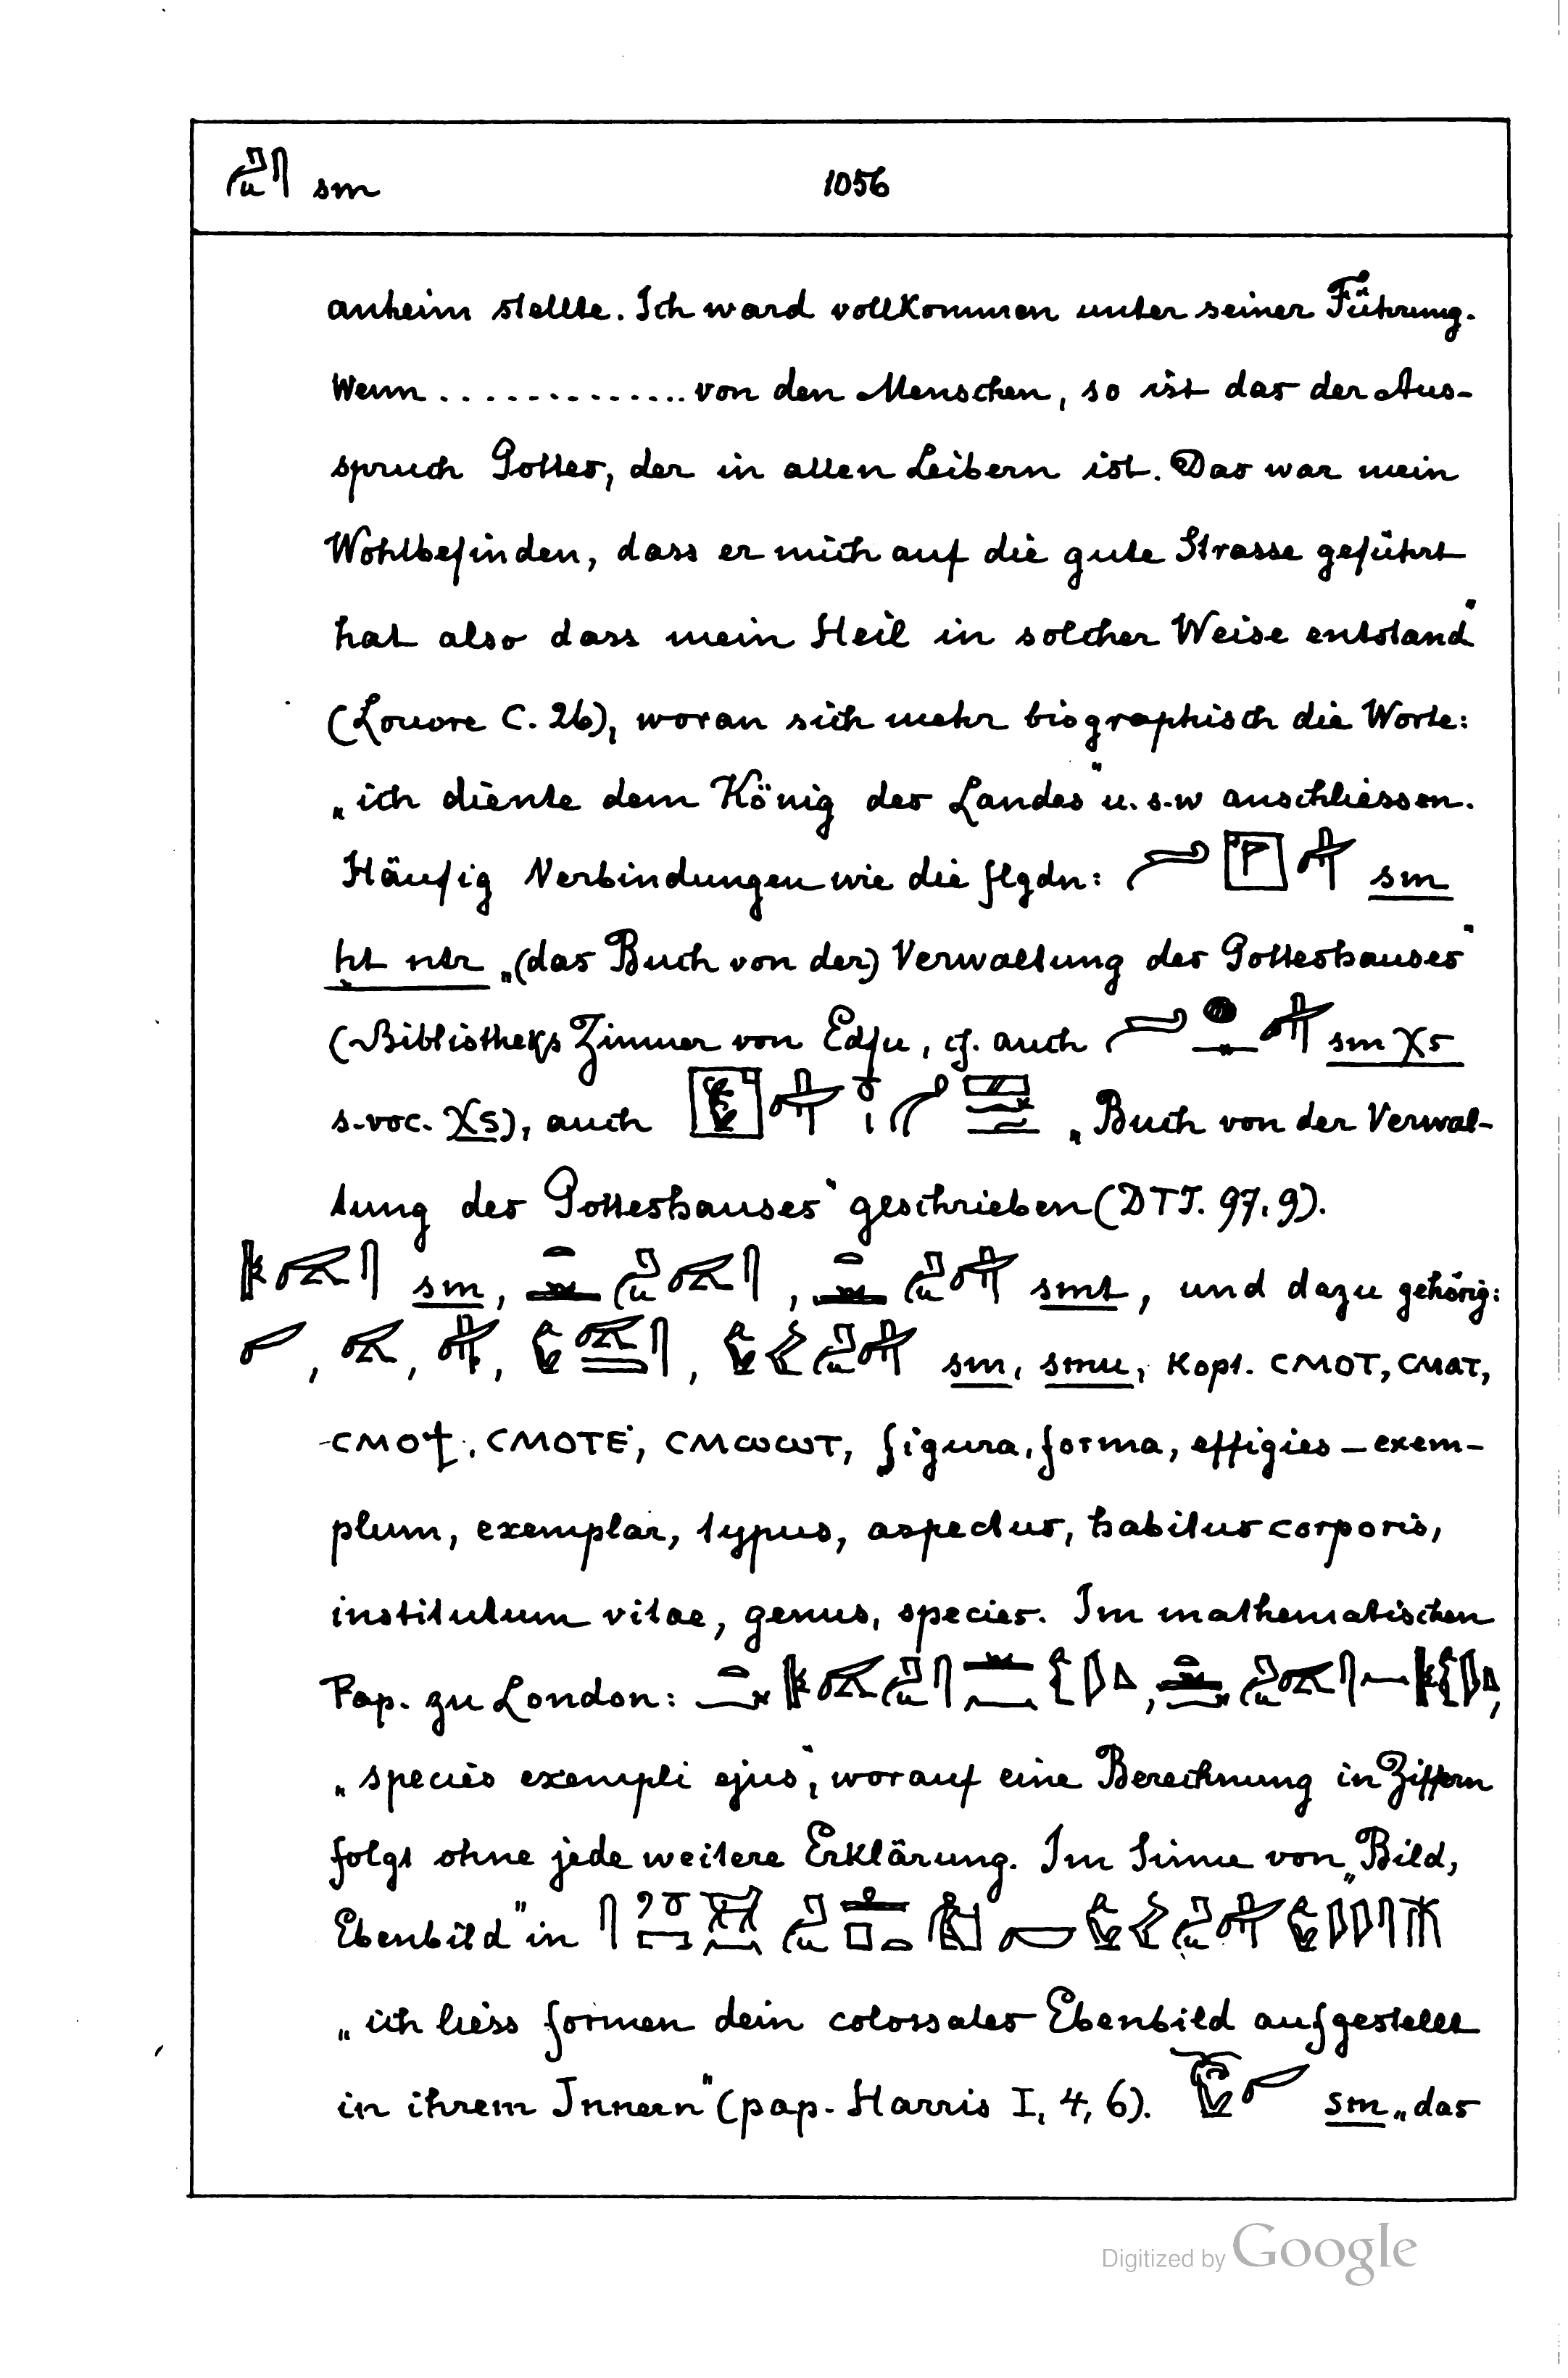 sm 1056
anheim stellte. Ich ward vollkommen unter seiner Führung.
Wenn .............. von den Menschen, so ist das der Aus-
spruch Gottes, der in allen Leibern ist. Das war mein
Wohlbefinden, dass er mich auf die gute Strasse geführt
hat also dass mein Heil in solcher Weise entstand"
(Louvre C. 26), woran sich mehr biographisch die Worte:
„ich diente dem König des Landes" u. s. w anschliessen.
Häufig Verbindungen wie die flgdn: sm
ḥt ntr „(das Buch von der) Verwaltung des Gotteshauses"
(Bibliotheks Zimmer von Edfu, cf. auch sm χs
s. voc. χs), auch „Buch von der Verwal-
tung des Gotteshauses" geschrieben (DTJ. 97, 9).
sm, , smt, und dazu gehörig:
, , , , sm, smu, kopt. ⲤⲘⲞⲦ, ⲤⲘⲀⲦ,
ⲤⲘⲞϮ, ⲤⲘⲞⲦⲈ, ⲤⲘⲰⲰⲦ, figura, forma, effigies – exem-
plum, exemplar, typus, aspectus, habitus corporis,
institutum vitae, genus, species. Im mathematischen
Pap. zu London: , ,
„species exempli ejus", worauf eine Berechnung in Ziffern
folgt ohne jede weitere Erklärung. Im Sinne von „Bild,
Ebenbild" in
„ich liess formen dein colossales Ebenbild aufgestellt
in ihrem Innern" (pap. Harris I, 4, 6). sm „das
Digitized by Google